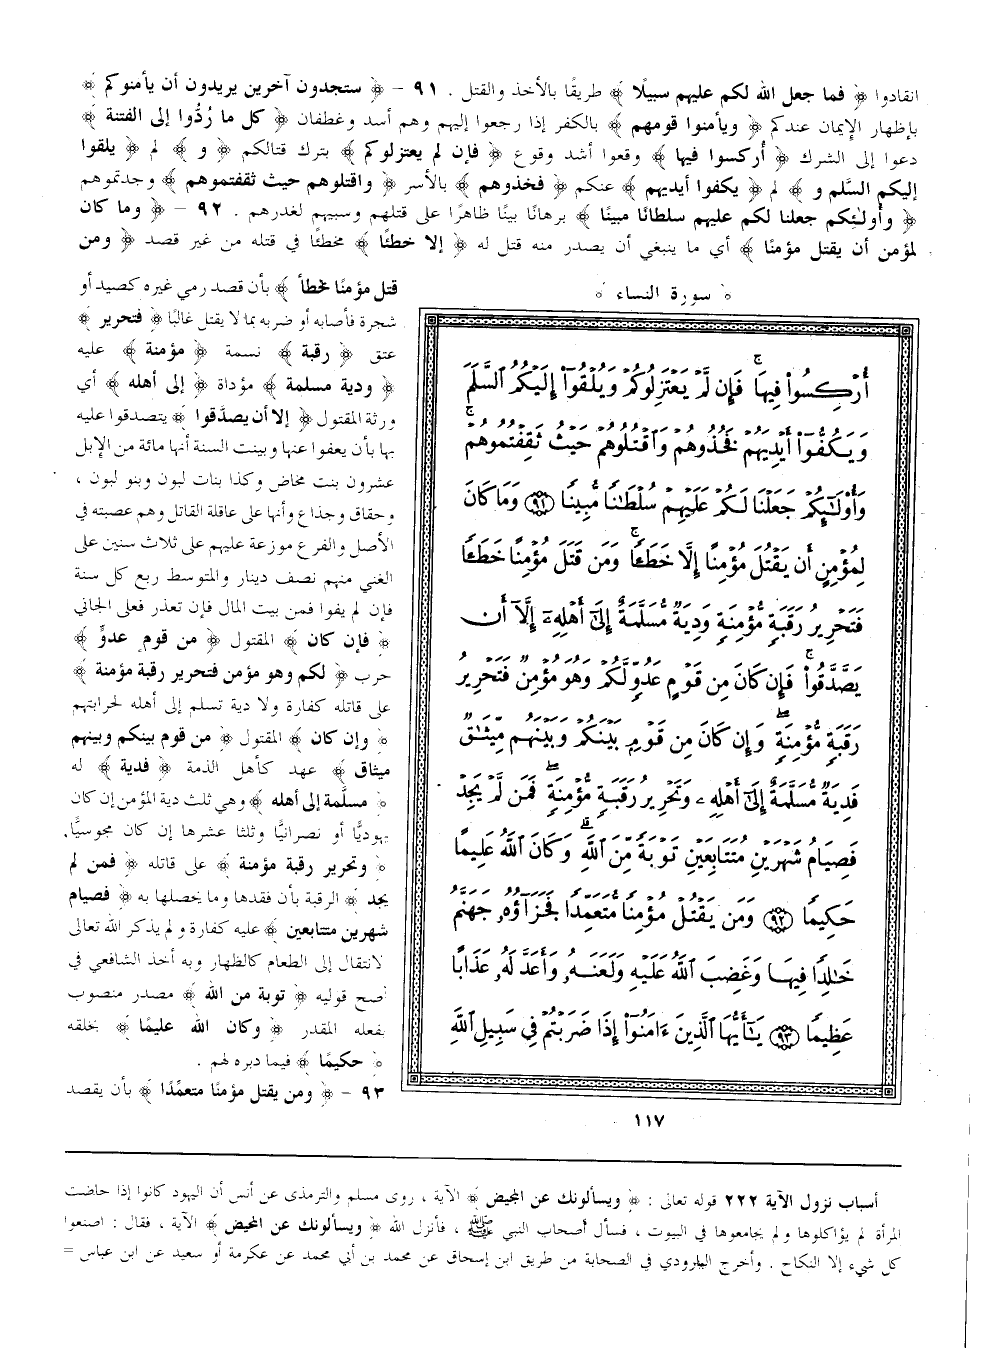 انقادوا ﴿ فما جعل الله لكم عليهم سبيلًا ﴾ طريقًا بالأخذ والقتل . ٩١ - ﴿ ستجدون آخرين يريدون أن يأمنوكم ﴾
بإظهار الإيمان عندكم ﴿ ويأمنوا قومهم ﴾ بالكفر إذا رجعوا إليهم وهم أسد وغطفان ﴿ كل ما رُدُّوا إلى الفتنة ﴾
دعوا إلى الشرك ﴿ أُركسوا فيها ﴾ وقعوا أشد وقوع ﴿ فإن لم يعتزلوكم ﴾ بترك قتالكم ﴿ و ﴾ لم ﴿ يلقوا
إليكم السَّلم و ﴾ لم ﴿ يكفوا أيديهم ﴾ عنكم ﴿ فخذوهم ﴾ بالأسر ﴿ واقتلوهم حيث ثقفتموهم ﴾ وجدتموهم
﴿ وأولـٰئكم جعلنا لكم عليهم سلطانًا مبينًا ﴾ برهانًا بينًا ظاهرًا على قتلهم وسبيهم لغدرهم . ٩٢ - ﴿ وما كان
لمؤمن أن يقتل مؤمنًا ﴾ أي ما ينبغي أن يصدر منه قتل له ﴿ إلا خطئًا ﴾ مخطئًا في قتله من غير قصد ﴿ ومن
قتل مؤمنًا خطأ ﴾ بأن قصد رمي غيره كصيد أو
شجرة فأصابه أو ضربه بما لا يقتل غالبًا ﴿ فتحرير ﴾
عتق ﴿ رقبة ﴾ نسمة ﴿ مؤمنة ﴾ عليه
﴿ ودية مسلمة ﴾ مؤداة ﴿ إلى أهله ﴾ أي
ورثة المقتول ﴿ إلا أن يصدَّقوا ﴾ يتصدقوا عليه
بها بأن يعفوا عنها وبينت السنة أنها مائة من الإبل
عشرون بنت مخاض وكذا بنات لبون وبنو لبون ،
وحقاق وجذاع وأنها على عاقلة القاتل وهم عصبته في
الأصل والفرع موزعة عليهم على ثلاث سنين على
الغني منهم نصف دينار والمتوسط ربع كل سنة
فإن لم يفوا فمن بيت المال فإن تعذر فعلى الجاني
﴿ فإن كان ﴾ المقتول ﴿ من قوم عدوٍّ ﴾
حرب ﴿ لكم وهو مؤمن فتحرير رقبة مؤمنة ﴾
على قاتله كفارة ولا دية تسلم إلى أهله لحرابتهم
﴿ وإن كان ﴾ المقتول ﴿ من قوم بينكم وبينهم
ميثاق ﴾ عهد كأهل الذمة ﴿ فدية ﴾ له
﴿ مسلَّمة إلى أهله ﴾ وهي ثلث دية المؤمن إن كان
يهوديًّا أو نصرانيًّا وثلثا عشرها إن كان مجوسيًّا
﴿ وتحرير رقبة مؤمنة ﴾ على قاتله ﴿ فمن لم
يجد ﴾ الرقبة بأن فقدها وما يحصلها به ﴿ فصيام
شهرين متتابعين ﴾ عليه كفارة و لم يذكر الله تعالى
لانتقال إلى الطعام كالظهار وبه أخذ الشافعي في
أصح قوليه ﴿ توبة من الله ﴾ مصدر منصوب
بفعله المقدر ﴿ وكان الله عليمًا ﴾ بخلقه
﴿ حكيمًا ﴾ فيما دبره لهم .
٩٣ - ﴿ ومن يقتل مؤمنًا متعمِّدًا ﴾ بأن يقصد
﴿ سورة النساء ﴾
أُرْكِسُوا۟ فِيهَا ۚ فَإِن لَّمْ يَعْتَزِلُوكُمْ وَيُلْقُوٓا۟ إِلَيْكُمُ ٱلسَّلَمَ
وَيَكُفُّوٓا۟ أَيْدِيَهُمْ فَخُذُوهُمْ وَٱقْتُلُوهُمْ حَيْثُ ثَقِفْتُمُوهُمْ ۚ
وَأُو۟لَـٰٓئِكُمْ جَعَلْنَا لَكُمْ عَلَيْهِمْ سُلْطَـٰنًا مُّبِينًا ۝٩١ وَمَا كَانَ
لِمُؤْمِنٍ أَن يَقْتُلَ مُؤْمِنًا إِلَّا خَطَـًٔا ۚ وَمَن قَتَلَ مُؤْمِنًا خَطَـًٔا
فَتَحْرِيرُ رَقَبَةٍ مُّؤْمِنَةٍ وَدِيَةٌ مُّسَلَّمَةٌ إِلَىٰٓ أَهْلِهِۦٓ إِلَّآ أَن
يَصَّدَّقُوا۟ ۚ فَإِن كَانَ مِن قَوْمٍ عَدُوٍّ لَّكُمْ وَهُوَ مُؤْمِنٌ فَتَحْرِيرُ
رَقَبَةٍ مُّؤْمِنَةٍ ۖ وَإِن كَانَ مِن قَوْمٍۭ بَيْنَكُمْ وَبَيْنَهُم مِّيثَـٰقٌ
فَدِيَةٌ مُّسَلَّمَةٌ إِلَىٰٓ أَهْلِهِۦ وَتَحْرِيرُ رَقَبَةٍ مُّؤْمِنَةٍ ۖ فَمَن لَّمْ يَجِدْ
فَصِيَامُ شَهْرَيْنِ مُتَتَابِعَيْنِ تَوْبَةً مِّنَ ٱللَّهِ ۗ وَكَانَ ٱللَّهُ عَلِيمًا
حَكِيمًا ۝٩٢ وَمَن يَقْتُلْ مُؤْمِنًا مُّتَعَمِّدًا فَجَزَآؤُهُۥ جَهَنَّمُ
خَـٰلِدًا فِيهَا وَغَضِبَ ٱللَّهُ عَلَيْهِ وَلَعَنَهُۥ وَأَعَدَّ لَهُۥ عَذَابًا
عَظِيمًا ۝٩٣ يَـٰٓأَيُّهَا ٱلَّذِينَ ءَامَنُوٓا۟ إِذَا ضَرَبْتُمْ فِى سَبِيلِ ٱللَّهِ
١١٧
أسباب نزول الآية ٢٢٢ قوله تعالى : ﴿ ويسألونك عن المحيض ﴾ الآية ، روى مسلم والترمذي عن أنس أن اليهود كانوا إذا حاضت
المرأة لم يؤاكلوها ولم يجامعوها في البيوت ، فسأل أصحاب النبي ﷺ ، فأنزل الله ﴿ ويسألونك عن المحيض ﴾ الآية ، فقال : اصنعوا
كل شيء إلا النكاح . وأخرج الباوردي في الصحابة من طريق ابن إسحاق عن محمد بن أبي محمد عن عكرمة أو سعيد عن ابن عباس =